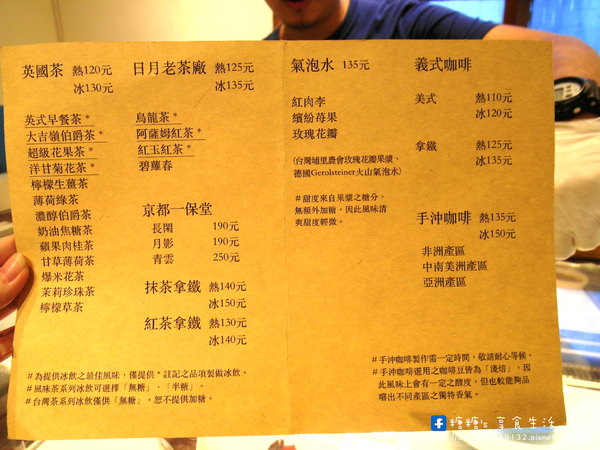 英國茶 熱120元
冰130元
英式早餐茶*
大吉嶺伯爵茶*
超級花果茶*
洋甘菊花茶*
檸檬生薑茶
薄荷綠茶
濃醇伯爵茶
奶油焦糖茶
蘋果肉桂茶
甘草薄荷茶
爆米花茶
茉莉珍珠茶
檸檬草茶
日月老茶廠 熱125元
冰135元
烏龍茶*
阿薩姆紅茶*
紅玉紅茶*
碧蘿春
京都一保堂
長閑 190元
月影 190元
青雲 250元
抹茶拿鐵 熱140元
冰150元
紅茶拿鐵 熱130元
冰140元
#為提供冰飲之最佳風味,僅提供*註記之品項製做冰飲。
#風味茶系列冰飲可選擇「無糖」、「半糖」。
#台灣茶系列冰飲僅供「無糖」,恕不提供加糖。
氣泡水 135元
紅肉李
繽紛苺果
玫瑰花瓣
(台灣埔里農會玫瑰花瓣果漿、
德國Gerolsteiner火山氣泡水)
#甜度來自果漿之糖分,
無額外加糖,因此風味清
爽甜度輕微。
義式咖啡
美式 熱110元
冰120元
拿鐵 熱125元
冰135元
手沖咖啡 熱135元
冰150元
非洲產區
中南美洲產區
亞洲產區
#手沖咖啡製作需一定時間,敬請耐心等候。
#手沖咖啡選用之咖啡豆皆為「淺焙」,因
此風味上會有一定之酸度,但也較能夠品
嚐出不同產區之獨特香氣。
糖糖's 享食生活